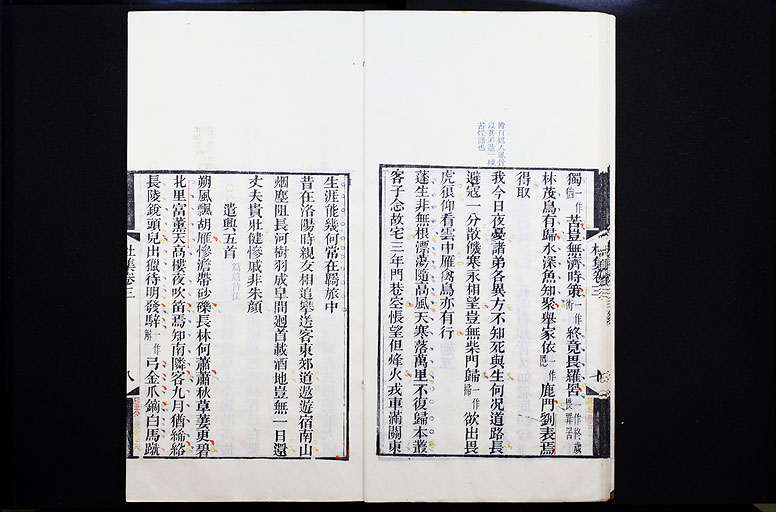 皆有說人处㫖
以其不造一緣
苦怪語也
獨一作恒苦豈無濟時策一作術終竟畏羅罟一作終歲畏罪罟
林茂鳥有歸水深魚知聚舉家依一作隱鹿門劉表焉
得取
我今日夜憂諸弟各異方不知死與生何況道路長
避寇一分散饑寒永相望豈無柴門歸一作掃欲出畏
虎狼仰看雲中雁禽鳥亦有行
蓬生非無根漂蕩隨高風天寒落萬里不復歸本叢
客子念故宅三年門巷空悵望但烽火戎車滿關東
生涯能幾何常在羇旅中
昔在洛陽時親友相追攀送客東郊道遨遊宿南山
烟塵阻長河樹羽成皐間廻首載酒地豈無一日還
丈夫貴壯健慘戚非朱顏
遣興五首
朔風飄胡雁慘澹帶砂礫長林何蕭蕭秋草萋更碧
北里富薰天高樓夜吹笛焉知南隣客九月猶絺綌
長陵銳頭兒出獵待明發騂一作觧弓金爪鏑白馬蹴
杜集卷三
八